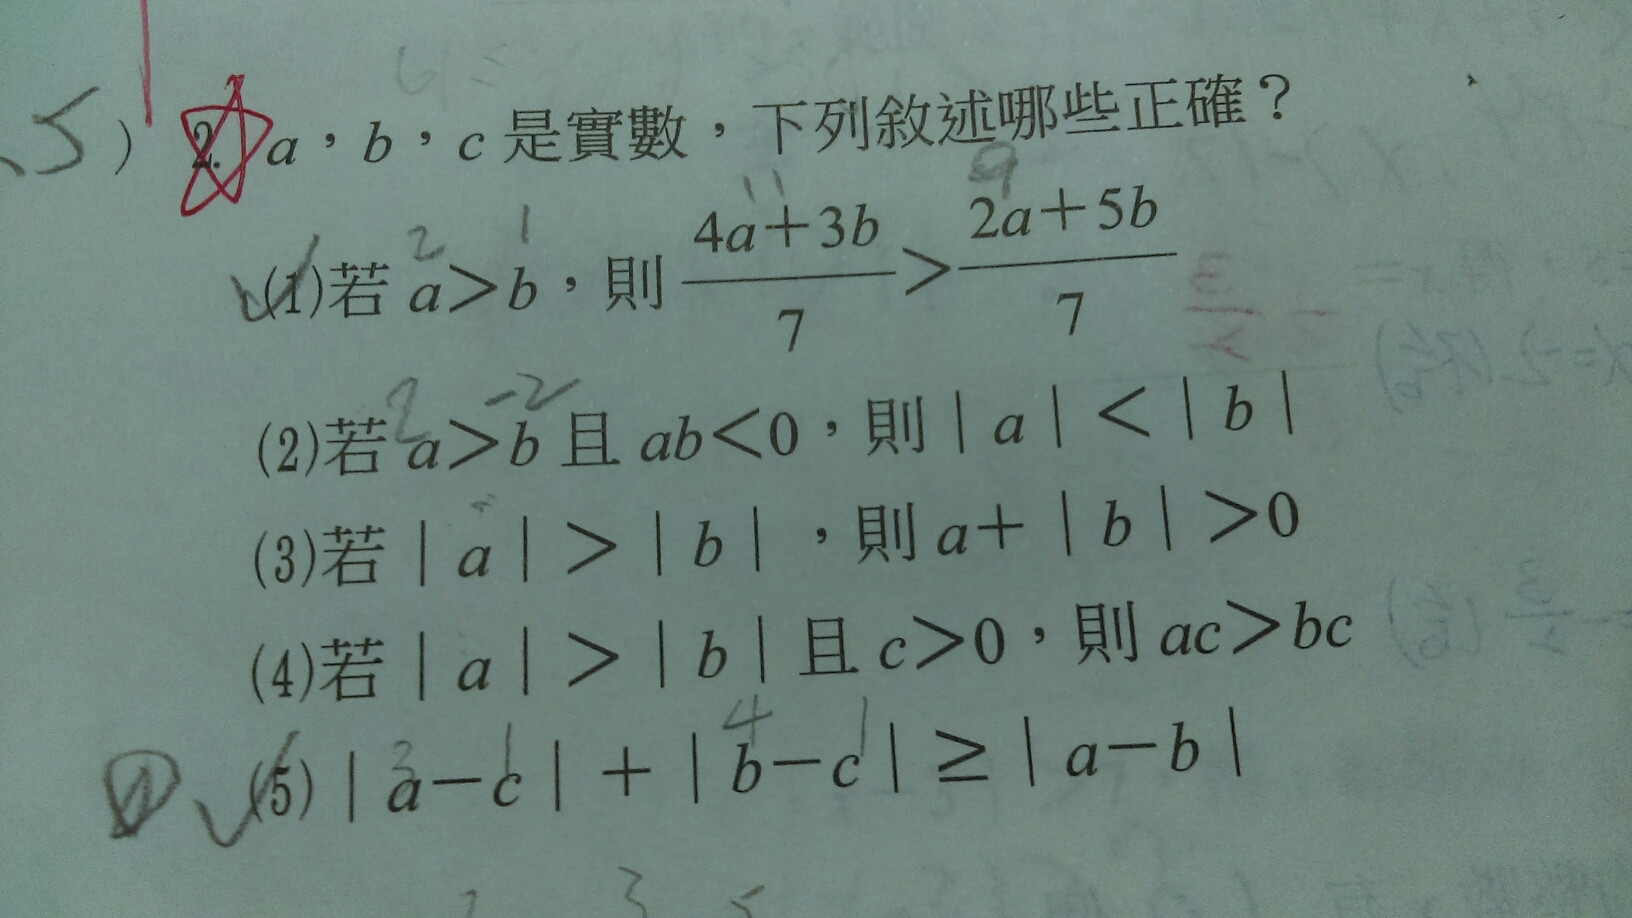 、5 ) 2. a，b，c 是實數，下列敘述哪些正確？
11 9
2 1
(1)若 a＞b，則 4a＋3b/7 ＞ 2a＋5b/7
2 -2
(2)若 a＞b 且 ab＜0，則｜a｜＜｜b｜
(3)若｜a｜＞｜b｜，則 a＋｜b｜＞0
(4)若｜a｜＞｜b｜且 c＞0，則 ac＞bc
3 1 4 1
(5)｜a－c｜＋｜b－c｜≥｜a－b｜
3 5